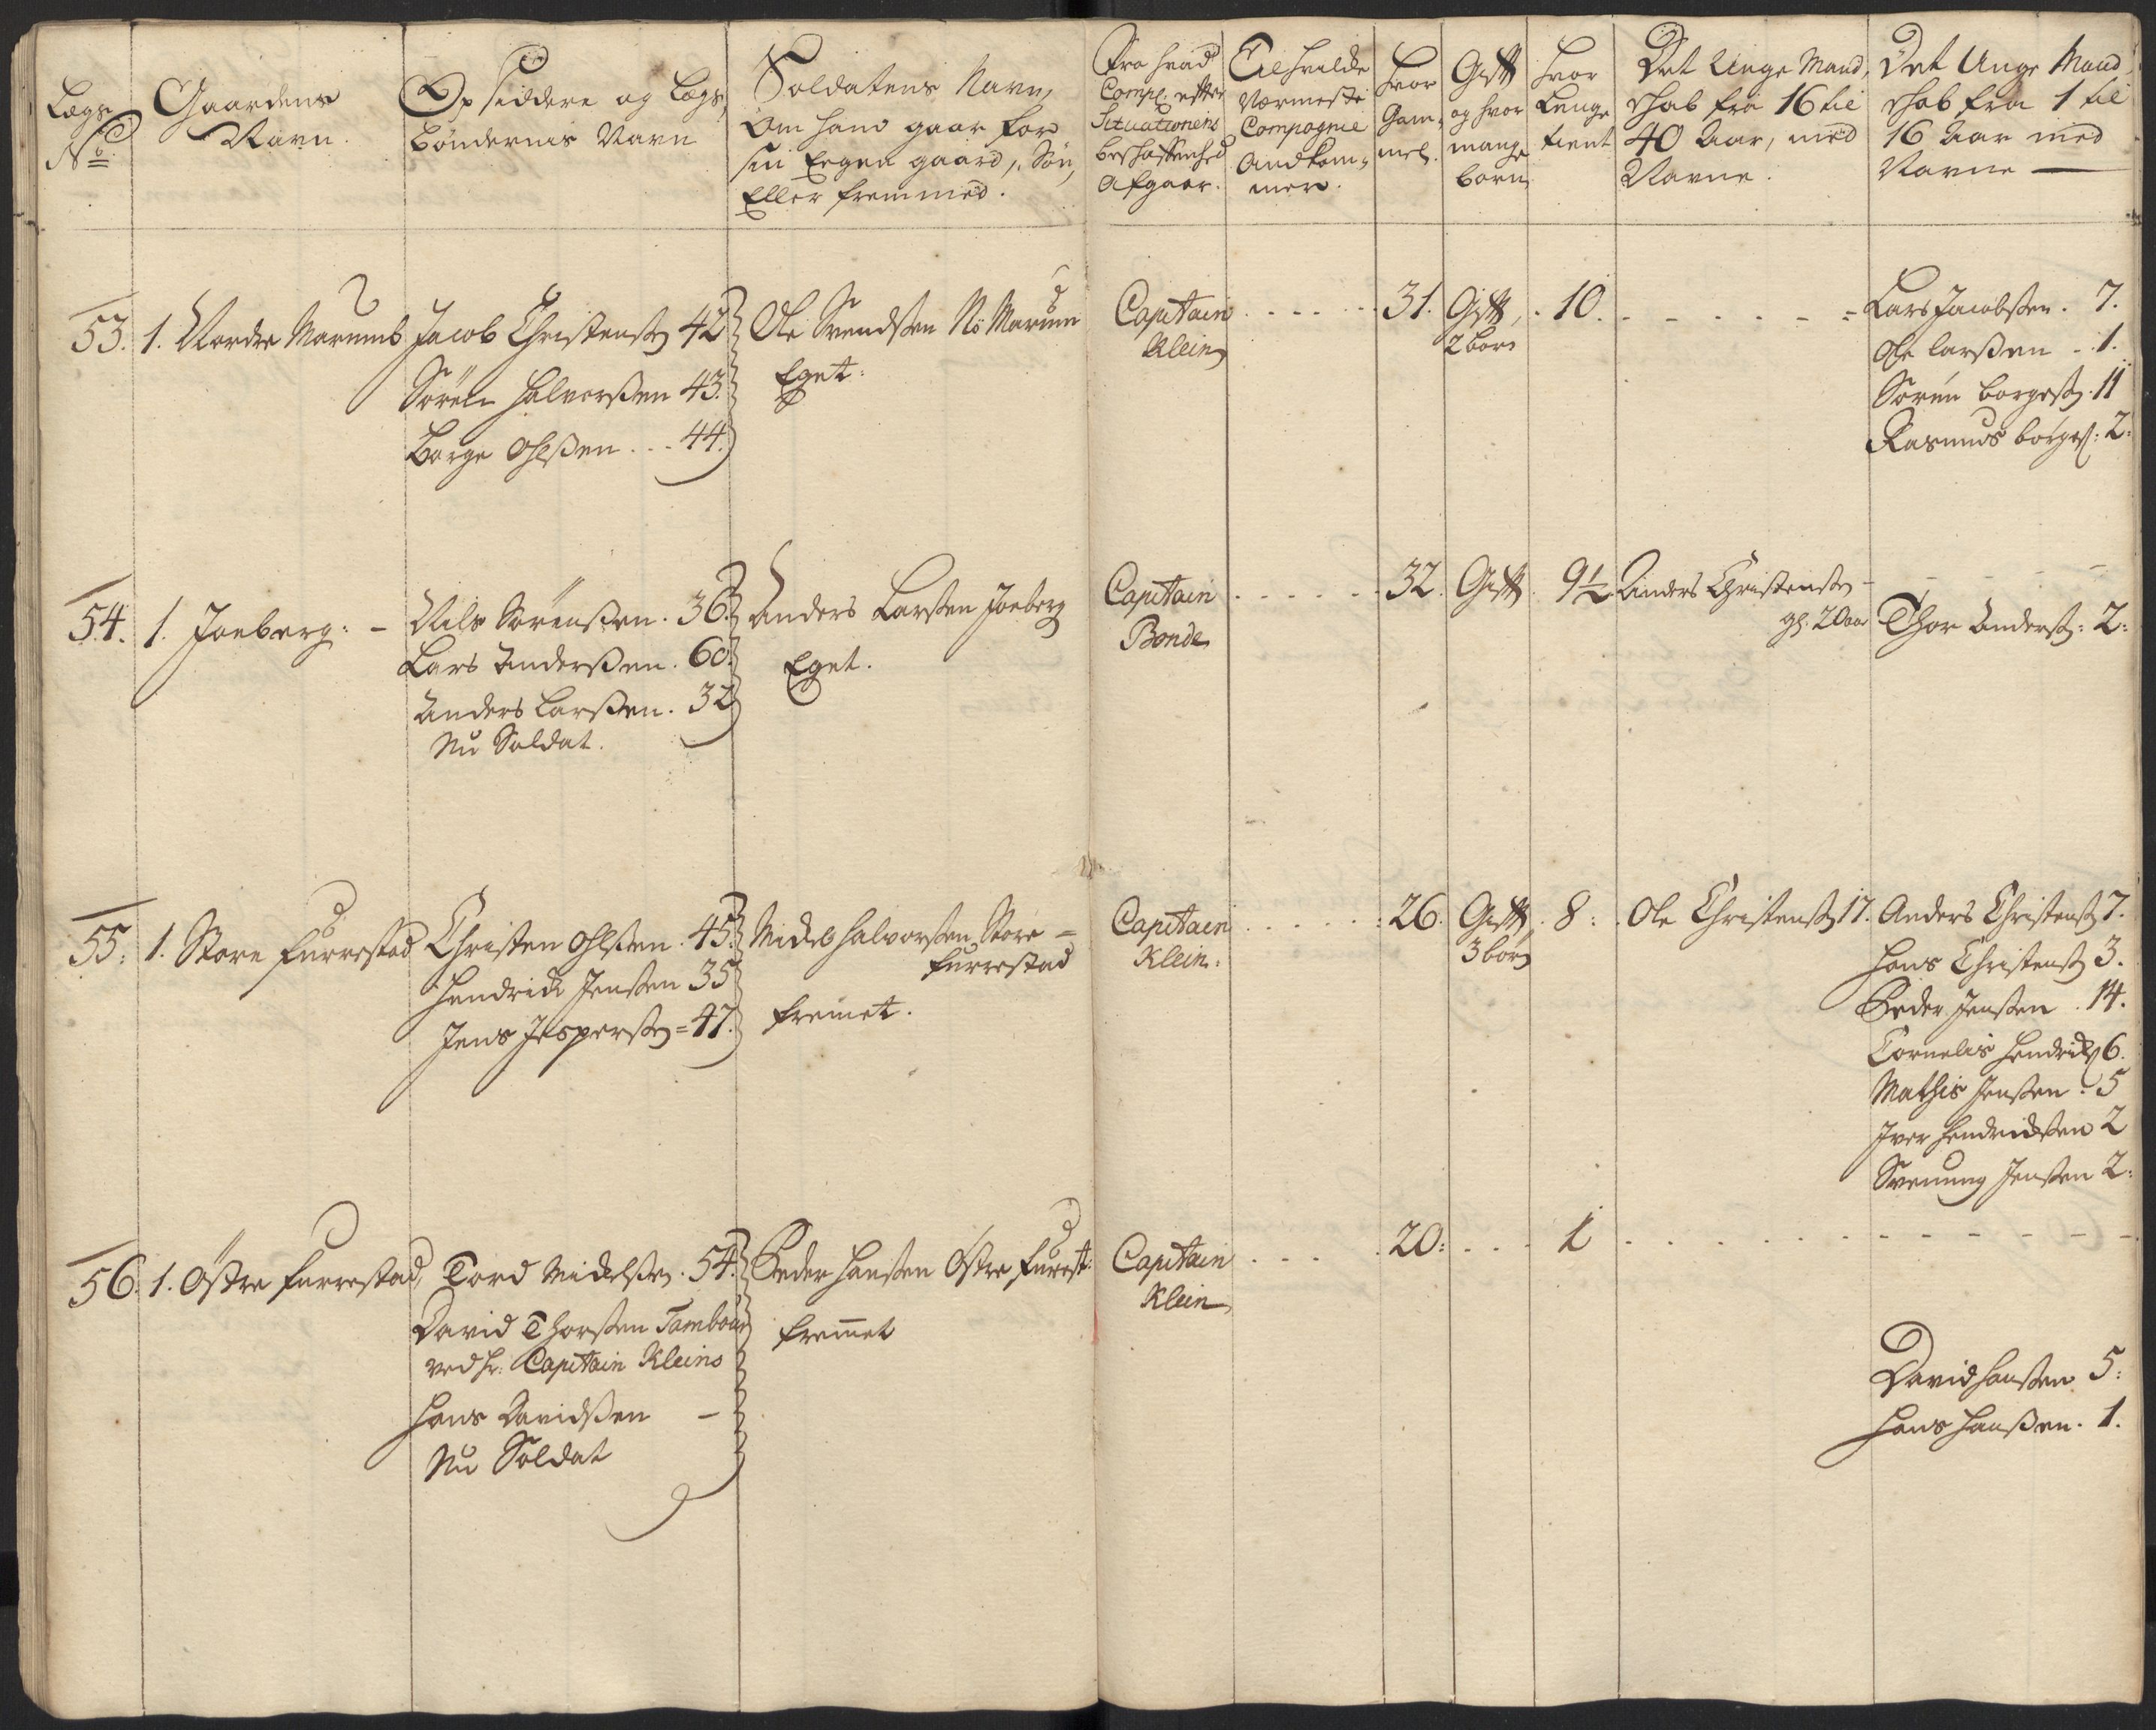 Lægs No
Gaardens Navn.
Opsiddere og Lægs Bøndernes Navn
Soldatens Navn, Om hand gaar for sin Eegen gaard, Søn, Eller fremmed.
Fra hvad Comp: efter Situationens beskaffenhed Afgaar.
Til hvilcke Nærmeste Compagnie Andkommer.
Hvor Gammel.
Gift og hvor mange børn
Hvor Lenge tient
Det Unge Mandskab fra 16 til 40 Aar, med Navne.
Det Unge Mandskab fra 1 til 16 Aar med Navne
53. 1. Nordre Marum
Jacob Christensen 42
Søren Halvorsen 43.
Borge Ohlsen . . . 44.
Ole Svendsen No Marum
Eget:
Capitain
Klein
31. Gift, 10.
2 børn
Lars Jacobsen. 7.
Ole Larsen . 1.
Søren Borges: 11
Rasmus Børges: 2:
54. 1. Joeberg:
Nils Sørensen. 36.
Lars Andersen. 60.
Anders Larsen. 32
Nu Soldat.
Anders Larsen Joeberg
Eget.
Capitain
Bonde
32. Gift 9½
Anders Christensen
gl. 20 aar
Thor Anders: 2:
55: 1. Store Furrestad
Christen Ohlsen. 45.
Hendrich Jensen 35
Jens Jespersen = 47.
Michel Halvorsen Store =
Furrestad
fremet.
Capitain
Klein:
26. Gift, 8:
3 børn
Ole Christens: 17.
Anders Christens: 7.
Hans Christens: 3.
Peder Jensen . 14.
Cornelis Hendrichs: 6.
Mathis Jensen : 5
Iver Hendrichsen 2
Svenung Jensen 2:
56. 1. Østre Furrestad,
Tord Michelsen. 54.
David Thorsen Tambour
ved Hr: Capitain Kleins
Hans Davidsen —
Nu Soldat
Peder Hansen Østre Furest:
fremmet
Capitain
Klein
20: 1
David Hansen 5:
Hans Hansen. 1.